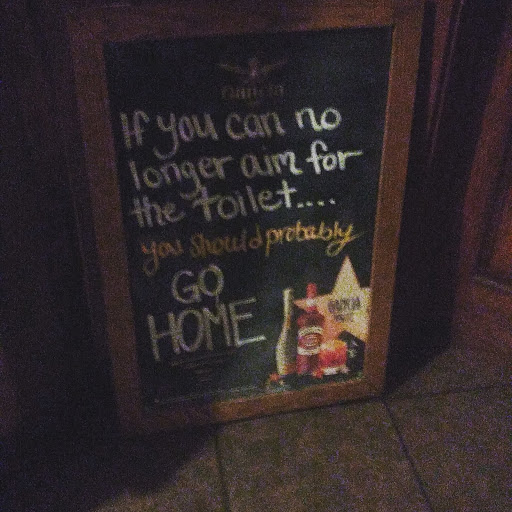 If you can no
longer aim for
the toilet....
you should probably
GO
HOME